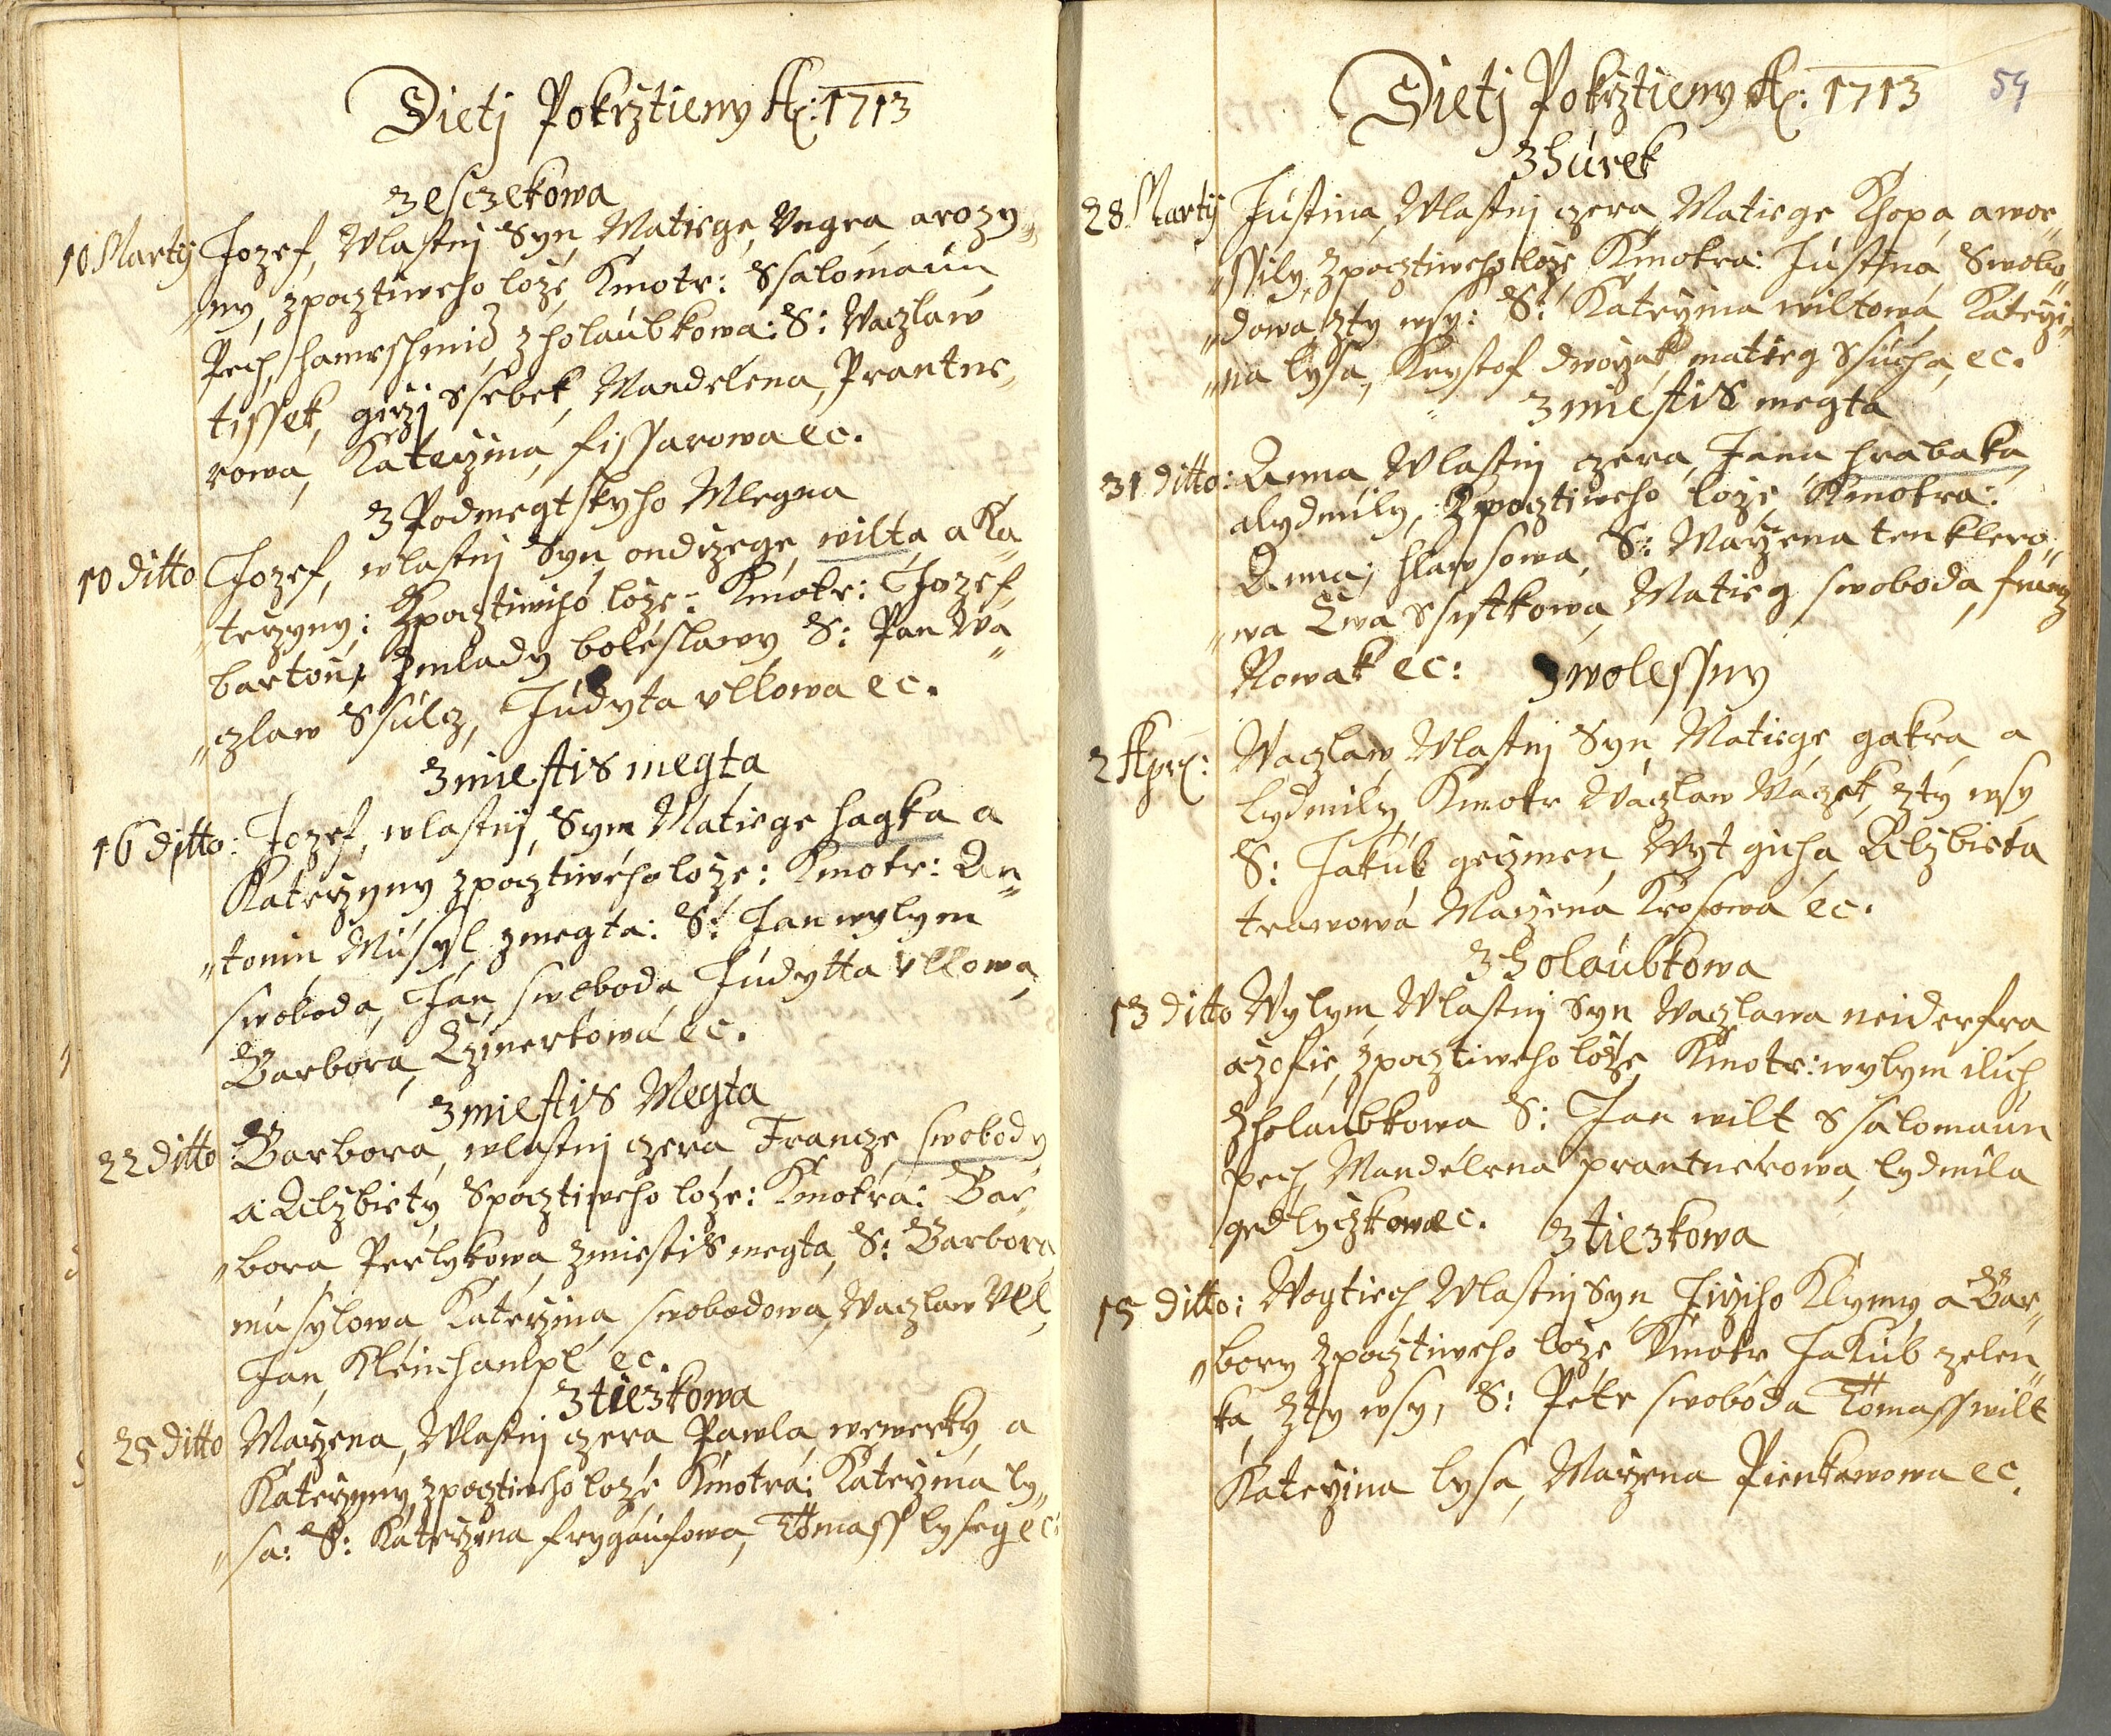 Dietj Pokrztieny Aõ: 1713
z esczekowa
10 Martij Jozef, Wlastnj Syn, Matiege, Ungra, a rozy„
„ny, zpocztiweho loze, Kmotr: Ssalomaun
Pech, hamrschmid z holaubkowa: S: Waczlaw
tissek, girzj Ssebek, Mandelena, Prantne„
rowa, Katerzina, fissarowa ec.
z Podmegtskyho Mlegna
10 ditto Jozef, wlastnj Syn, ondrzege, wilta, a Ka„
„terzyny; Zpocztiwiho loze: Kmotr: Jozef,
barton, zmlady boleslawy S: Pan Wa„
„czlaw Ssulcz, Judyta ullowa ec.
z miestis megta
16 ditto: Jozef, wlastnj, Syn, Matiege hagka a
Katerzyny zpocztiweho loze: Kmotr: An„
„tonin Musyl zmegta: S: Jan wylym
swoboda, Jan, swoboda Judytta Ullowa,
Barbora, Czinertowa ec.
z miestis Megta
22 ditto Barbora, wlastnj czera Francze, swobody
a Alzbiety, Spocztiweho loze: Kmotra: Bar„
„bora Perlykowa zmiestis megta, S: Barbora
musylowa, Katerzina, swobodowa, Waczlaw Ull,
Jan, Kleinhanlpl ec.
z tiezkowa
25 ditto Marzena, Wlastnj czera, Pawla, wewerky, a
Katerzyny, zpocztiweho loze Kmotra: Katerzina ly„
„sa: S: Katerzina frygaufowa, Tomass lyseg ec
Dietj Pokrztieny Aõ: 1713 59
z hurek
28 Martij Justina, Wlastnj czera, Matiege Chopa, a wor„
„ssily, Zpocztiweho loze, Kmotra: Justina Swobo„
„dowa, zty wsy: S: Katerzina wiltowa, Katerzi„
„na lysa, Krystof dworzak, matieg Ssucha, ec.
z miestis megta
31 ditto: Anna, Wlastnj czera, Jana hrabaka
a lydmily, Zpocztiweho loze, Kmotra:
Anna, hlawsowa, S: Marzena tenklero„
„wa Ewa Ssistkowa Matieg swoboda, francz
Nowak ec: z wolessny
2 Apr: Waczlaw, Wlastnj Syn, Matiege, gakra, a
Lydmily, Kmotr Waczlaw Waczek, zty wsy
S: Jakub geczmen, Wyt giha Alzbieta
trawowa Marzena Krosowa ec.
z holaubkowa
13 ditto Wylym, Wlastnj Syn, Waczlawa neiderfra
a zofie, zpocztiweho loze, Kmotr: wylym ilich,
Zholaubkowa S: Jan wilt Ssalomaun
pech, Mandelena prantnerowa, lydmila
gedlyczkowa ec. z tiezkowa
15 ditto: Wogtiech Wlastnj Syn, Jirziho Klymy, a Bar„
„bory Zpocztiweho loze, Kmotr Jakub zelen„
ka, Zty wsy, S: Petr swoboda Tomass wilt
Katerzina lysa, Marzena Pienkawowa ec.